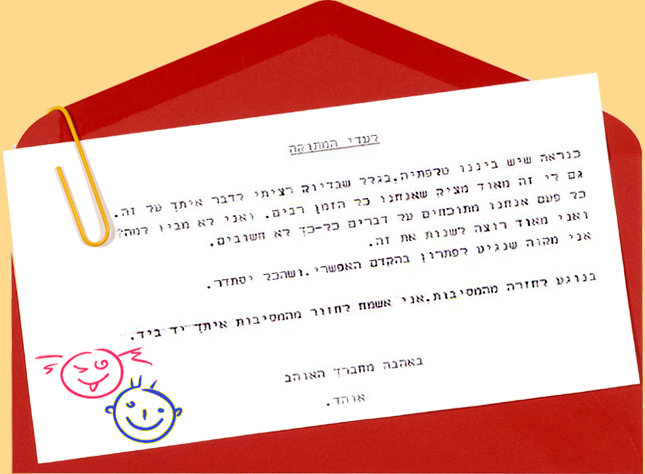 לעדי המתוקה
כנראה שיש ביננו טלפתיה,בגלל שבדיוק רציתי לדבר איתך על זה.
גם לי זה מאוד מציק שאנחנו כל הזמן רבים. ואני לא מבין למה?
כל פעם אנחנו מתוכחים על דברים כל-כך לא חשובים.
ואני מאוד רוצה לשנות את זה.
אני מקוה שנגיע לפתרון בהקדם האפשרי.ושהכל יסתדר.
בנוגע לחזרה מהמסיבות,אני אשמח לחזור מהמסיבות איתך יד ביד.
באהבה מחברך האוהב
אוהד.